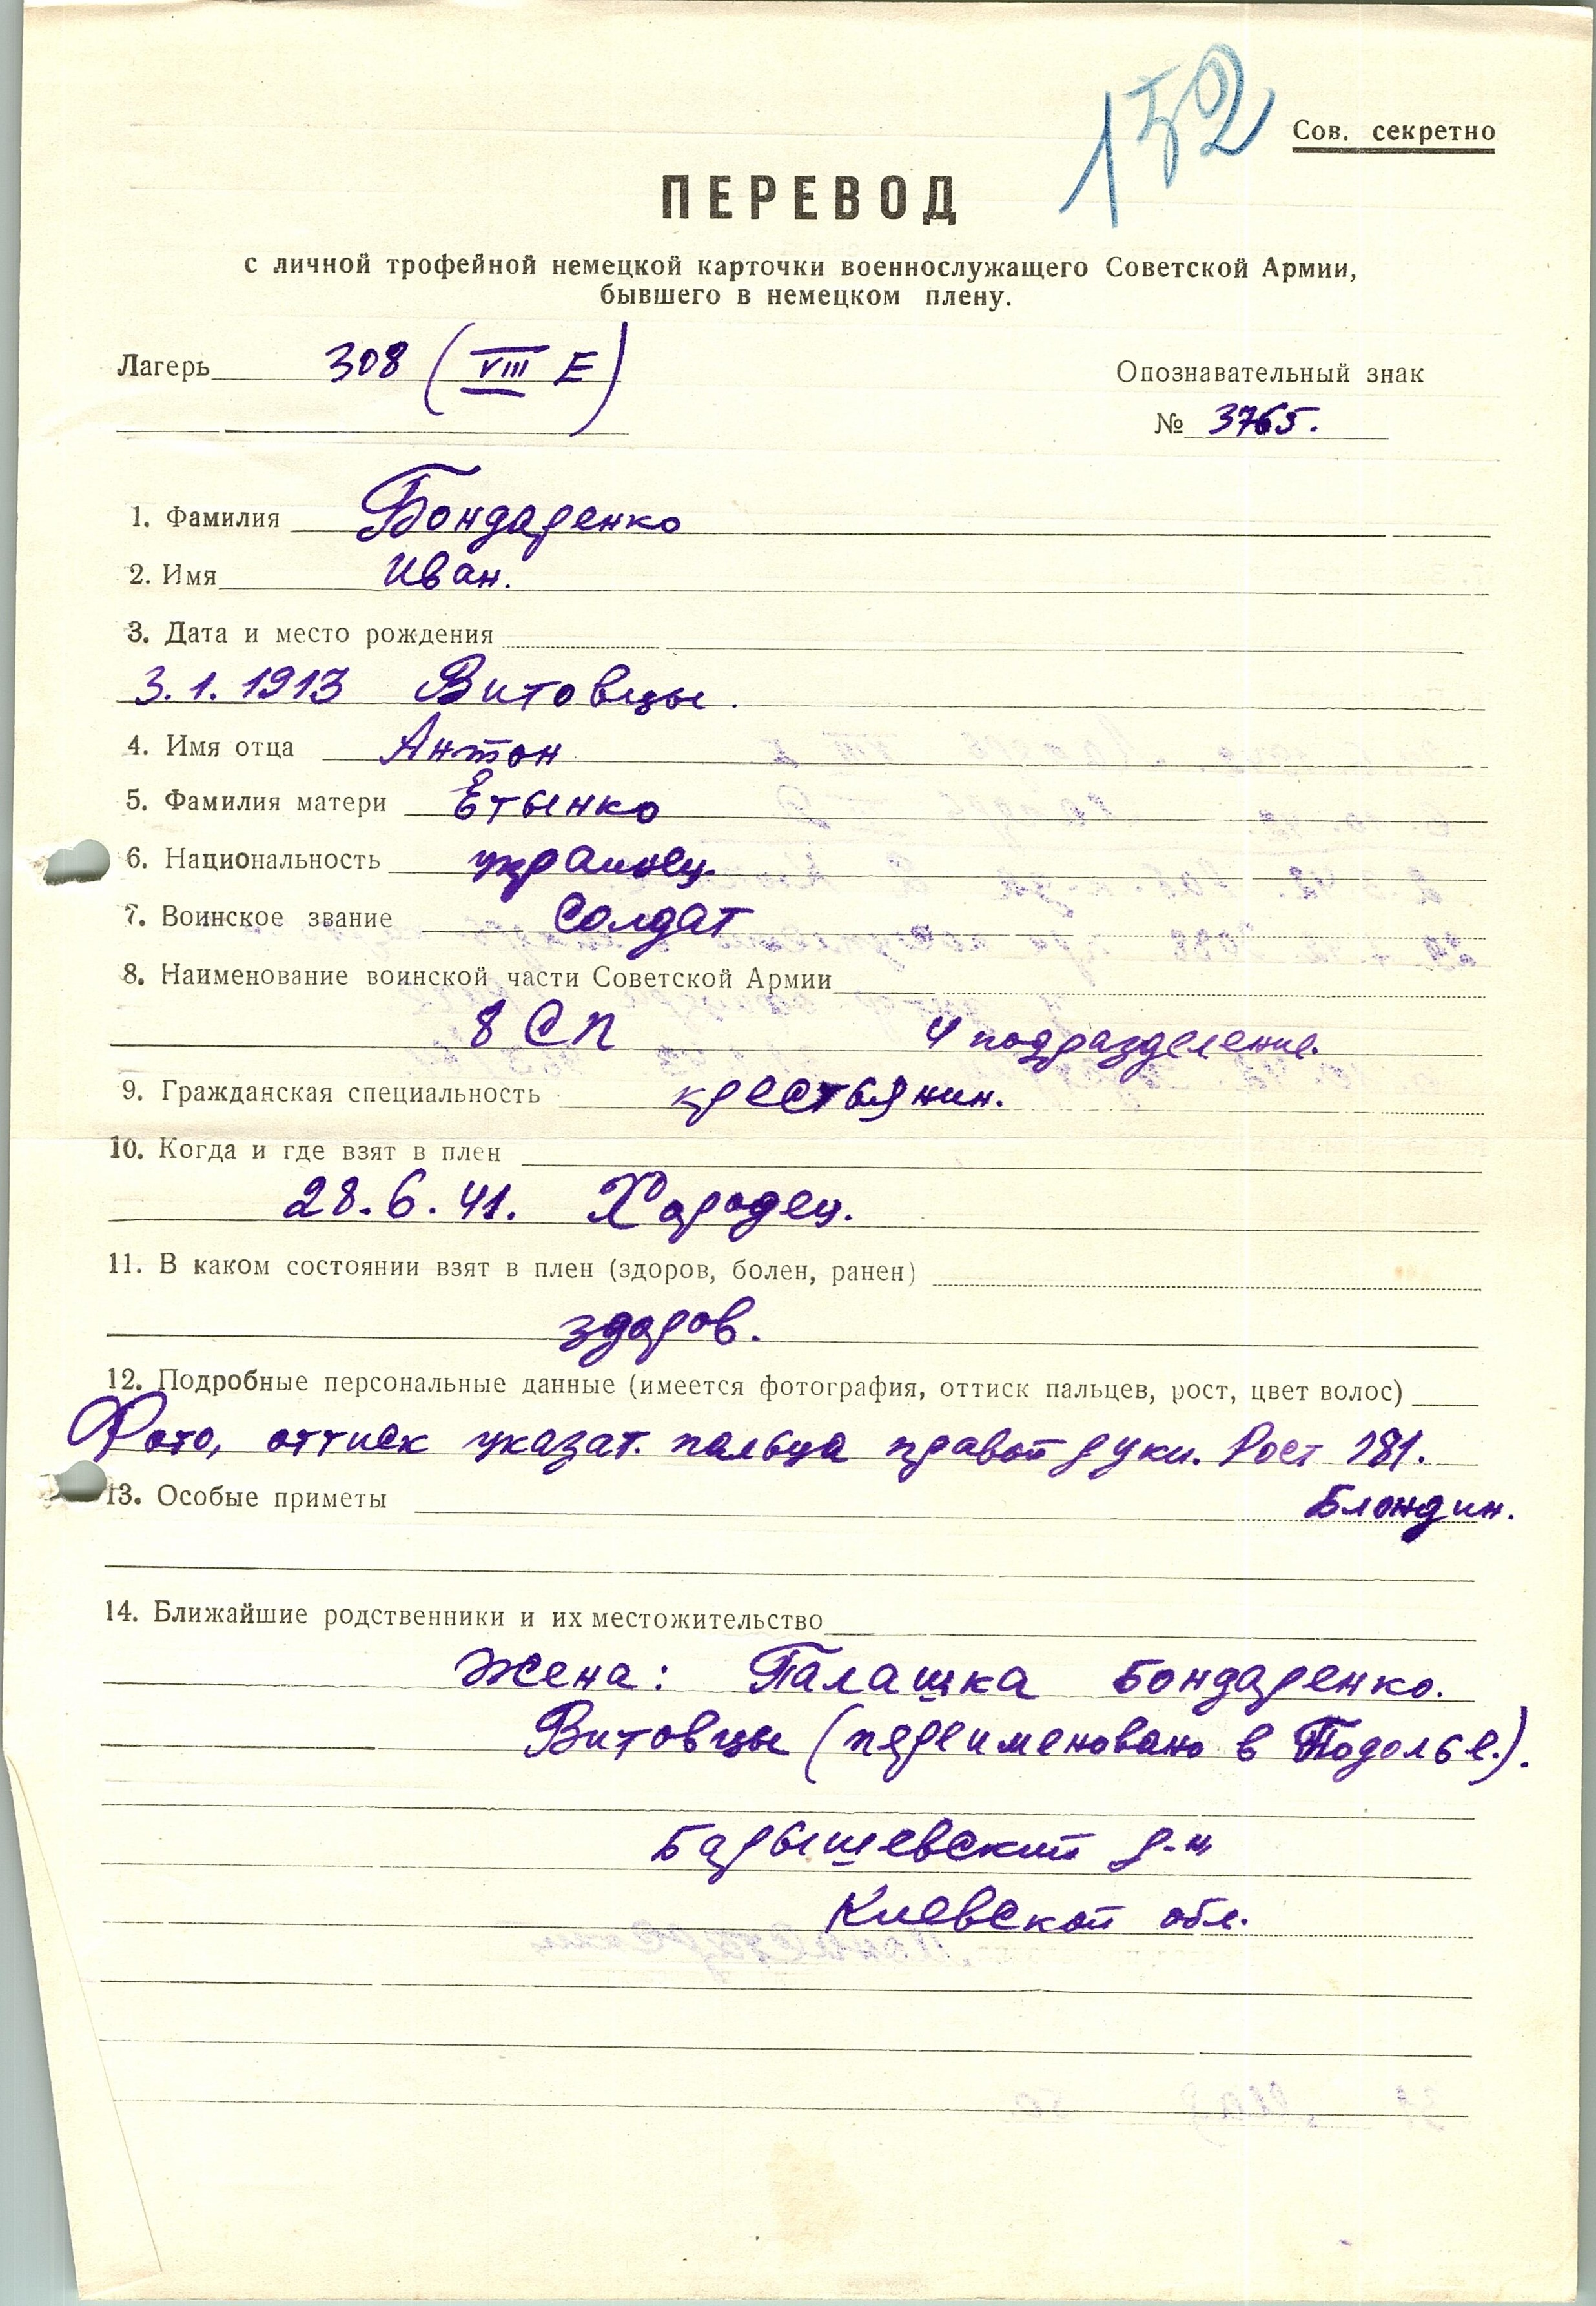 152
Сов. секретно
ПЕРЕВОД
с личной трофейной немецкой карточки военнослужащего Советской Армии,
бывшего в немецком плену.
Лагерь 308 (VIII E)
Опознавательный знак
№ 3765.
1. Фамилия Бондаренко
2. Имя Иван.
3. Дата и место рождения
3.1.1913 Витовцы.
4. Имя отца Антон
5. Фамилия матери Етынко
6. Национальность украинец.
7. Воинское звание Солдат
8. Наименование воинской части Советской Армии
8 СП 4 подразделение.
9. Гражданская специальность крестьянин.
10. Когда и где взят в плен
28.6.41. Хородец.
11. В каком состоянии взят в плен (здоров, болен, ранен)
здоров.
12. Подробные персональные данные (имеется фотография, оттиск пальцев, рост, цвет волос)
Фото, оттиск указат. пальца правой руки. Рост 181.
13. Особые приметы Блондин.
14. Ближайшие родственники и их местожительство
Жена: Палашка Бондаренко.
Витовцы (переименовано в Подолье.).
Барышевский р-н
Киевской обл.